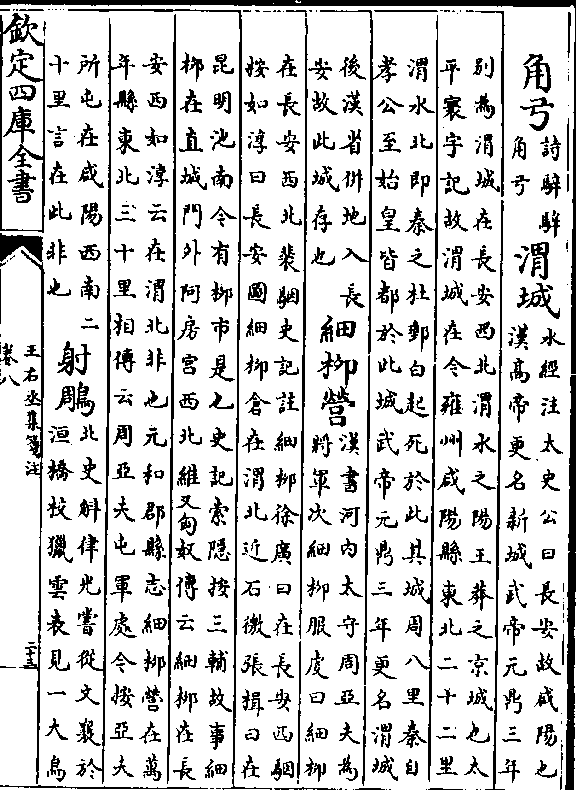 角弓 詩騂騂
角弓 渭城 水經注太史公曰長安故咸陽也
漢高帝更名新城武帝元鼎三年
別為渭城在長安西北渭水之陽王莽之京城也太
平寰宇記故渭城在今雍州咸陽縣東北二十二里
渭水北即秦之杜郵白起死於此其城周八里秦自
孝公至始皇皆都於此城武帝元鼎三年更名渭城
後漢省併地入長
安故此城存也 細柳營 漢書河内太守周亞夫為
將軍次細柳服虔曰細柳
在長安西北裴駰史記註細柳徐廣曰在長安西駰
按如淳曰長安圖細柳倉在渭北近石徼張揖曰在
昆明池南今有柳市是也史記索隱按三輔故事細
柳在直城門外阿房宫西北維又匈奴傳云細柳在長
安西如淳云在渭北非也元和郡縣志細柳營在萬
年縣東北三十里相傳云周亞夫屯軍處今按亞夫
所屯在咸陽西南二
十里言在此非也 射鵰 北史斛律光嘗從文襄於
洹橋校獵雲表見一大鳥
欽定四庫全書
王右丞集箋注
卷八
二十三